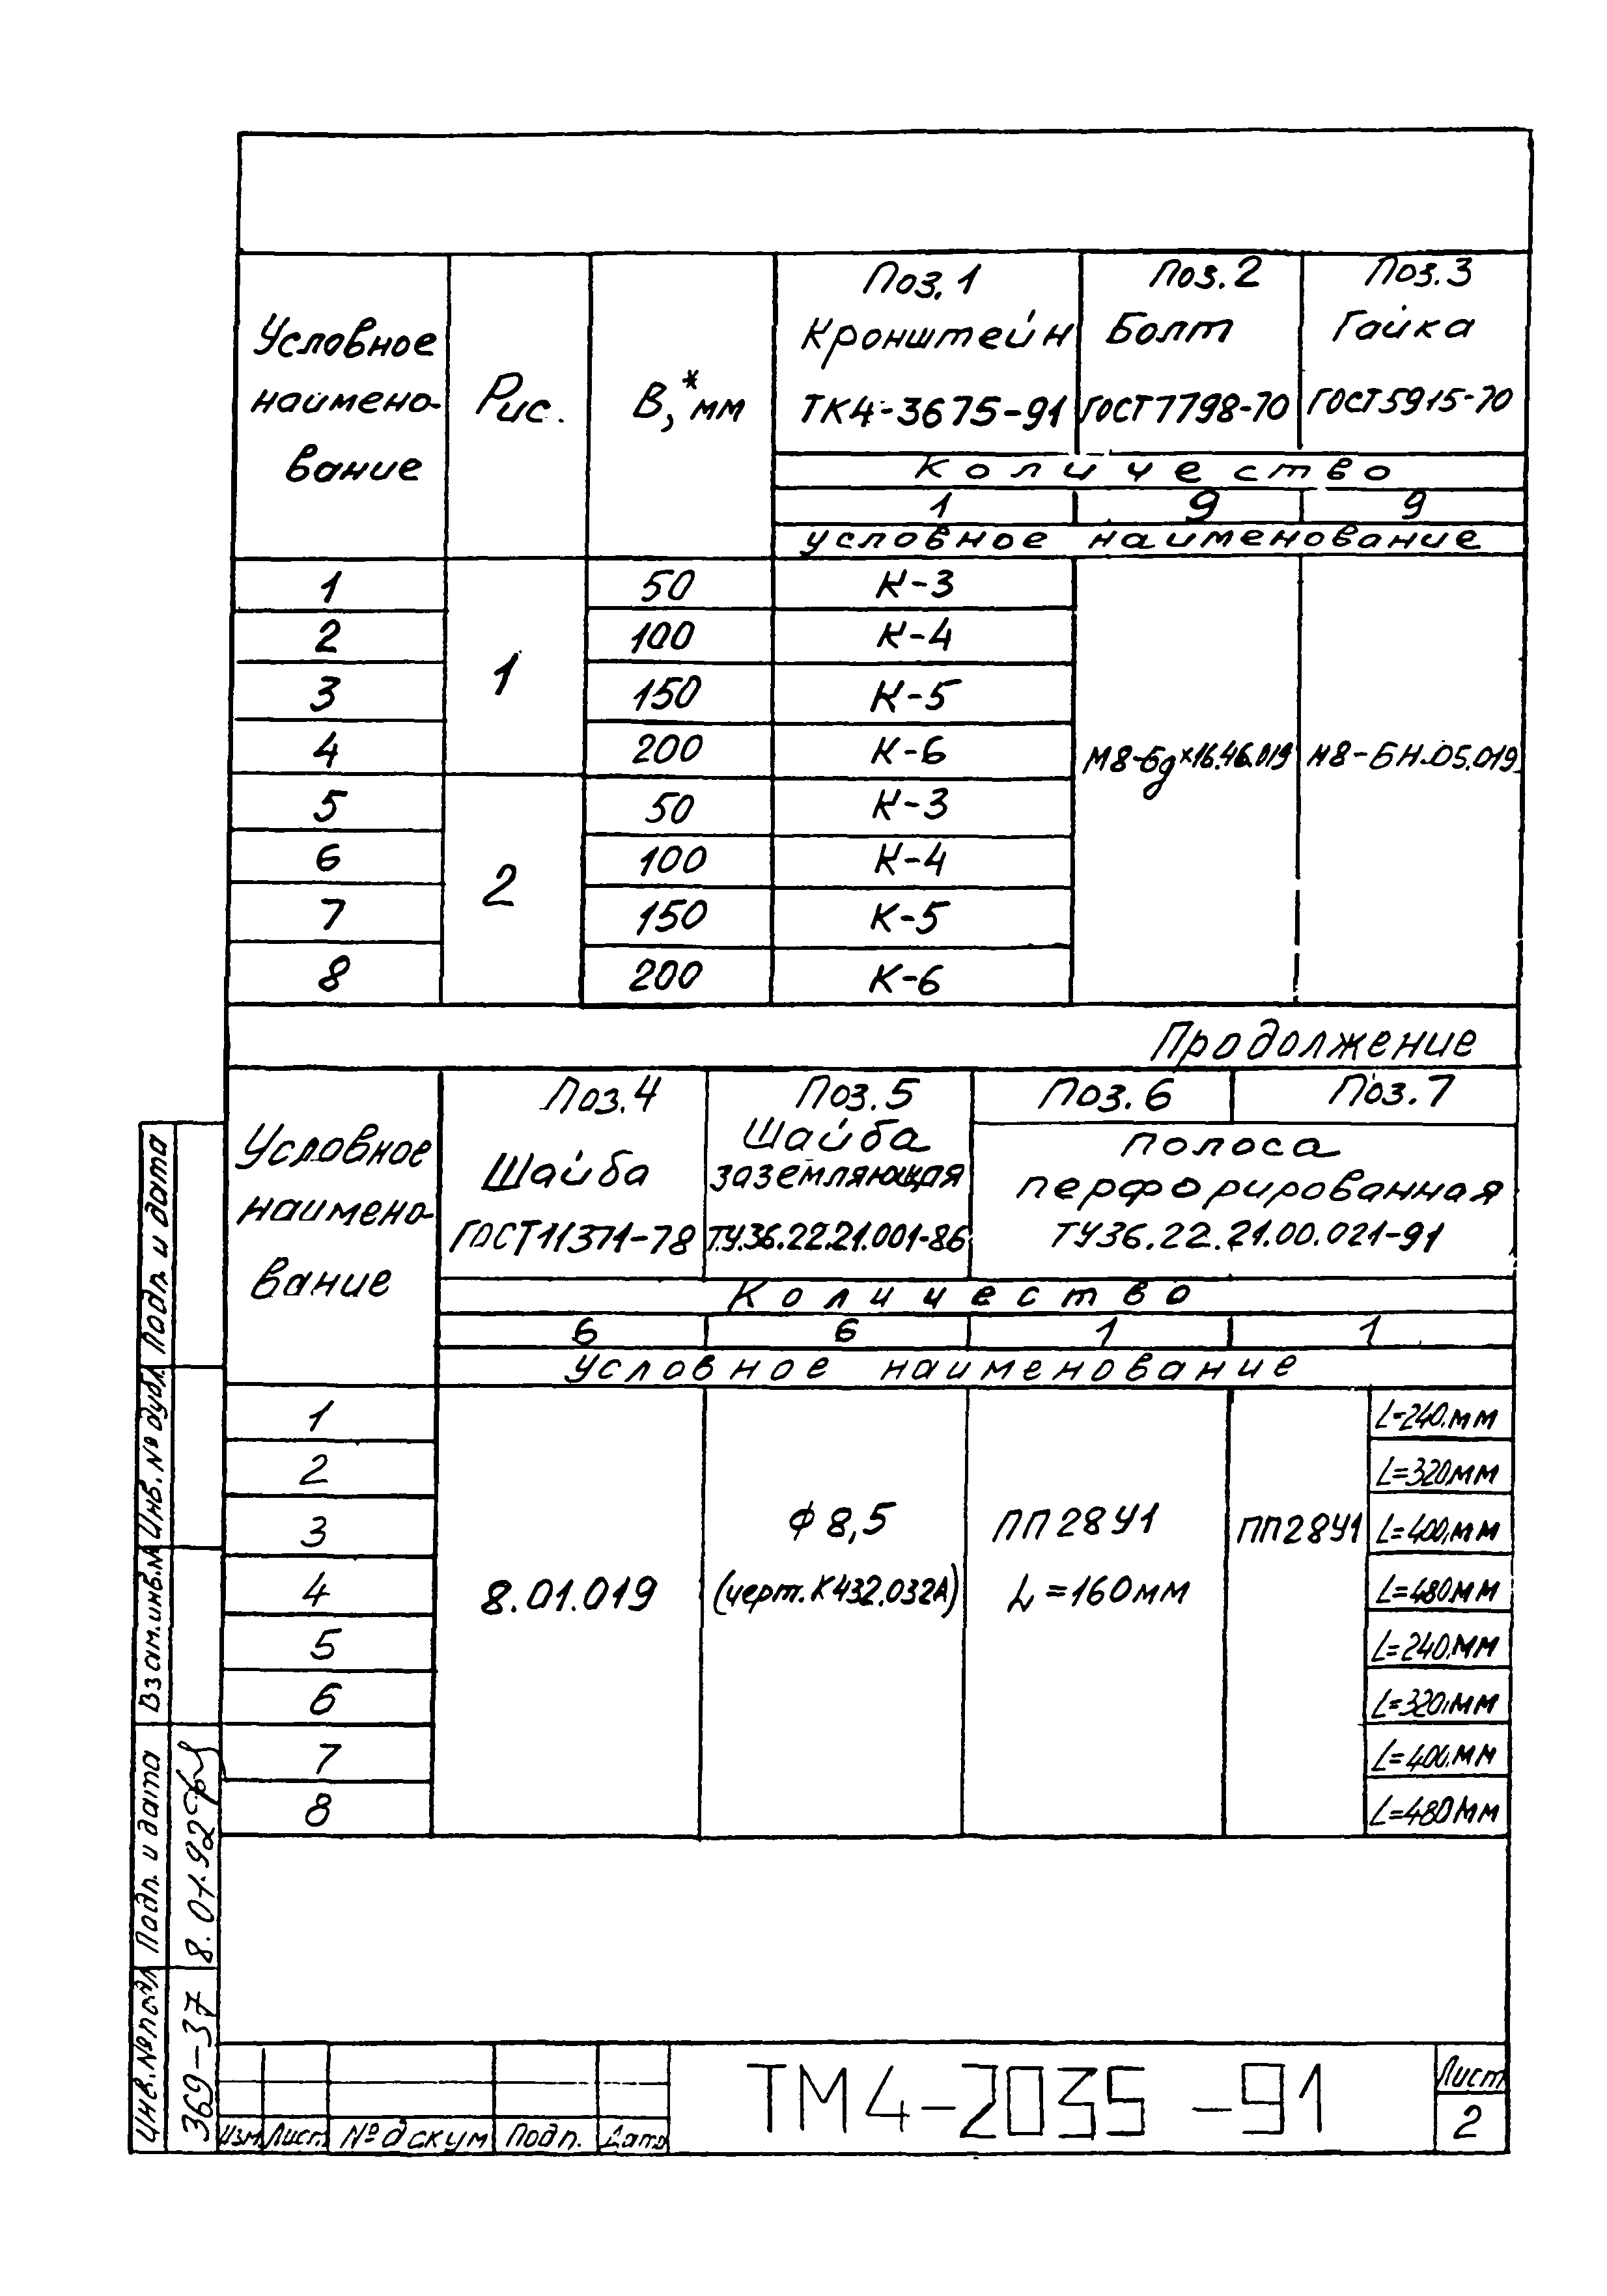 Условное наимено- вание
Рис.
В,* мм
Поз. 1 Кронштейн ТК4-3675-91
Поз. 2 Болт ГОСТ 7798-70
Поз. 3 Гайка ГОСТ 5915-70
Количество
1 9 9
условное наименование
1 1 50 К-3
2 100 К-4
3 150 К-5
4 200 К-6 М8-6g×16.46.019 М8-6Н.05.019
5 2 50 К-3
6 100 К-4
7 150 К-5
8 200 К-6
Продолжение
Условное наимено- вание
Поз. 4 Шайба ГОСТ 11371-78
Поз. 5 Шайба заземляющая ТУ.36.22.21.001-86
Поз. 6 Поз. 7
полоса
перфорированная
ТУ36.22.21.00.021-91
Количество
6 6 1 1
условное наименование
1 L=240.мм
2 L=320мм
3 Ф 8,5 ПП28У1 ПП28У1 L=400.мм
4 8.01.019 (черт. К432.032А) L=160мм L=480мм
5 L=240.мм
6 L=320.мм
7 L=400.мм
8 L=480мм
Подп. и дата
Инв. № дубл
Взам.инв.№
Подп. и дата
8.01.92
Инв.№подл
369-37
Изм Лист № докум Подп. Дата
ТМ4-2035-91
Лист
2